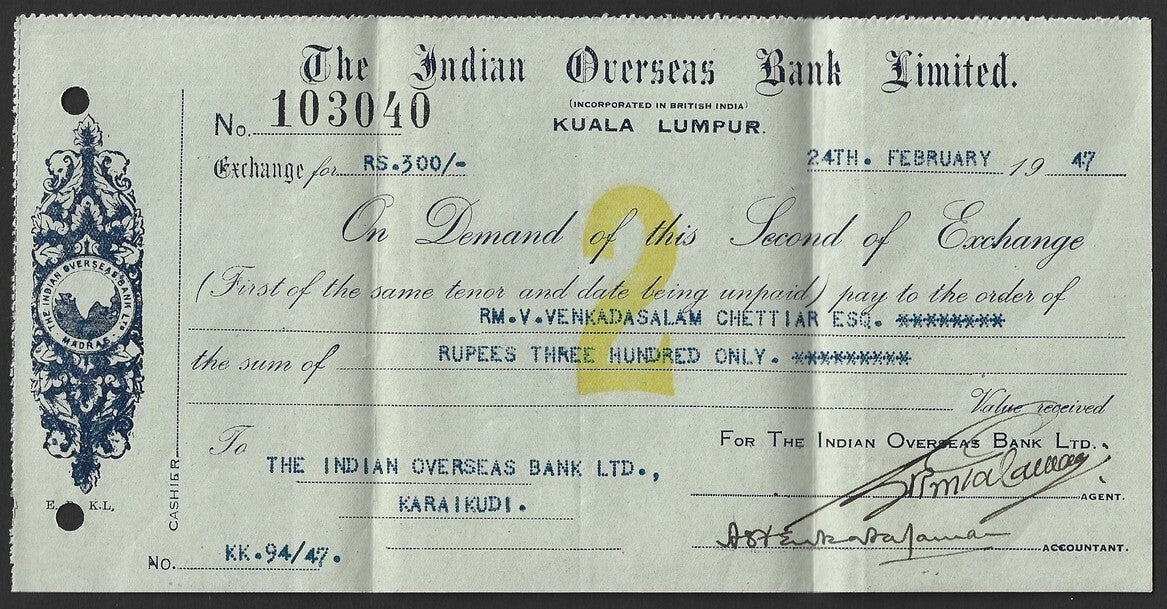 The Indian Overseas Bank Limited.
(INCORPORATED IN BRITISH INDIA)
KUALA LUMPUR.
No. 103040
Exchange for RS.300/-
24TH. FEBRUARY 19 47
2
On Demand of this Second of Exchange
(First of the same tenor and date being unpaid) pay to the order of
RM.V.VENKADASALAM CHETTIAR ESQ. ********
the sum of RUPEES THREE HUNDRED ONLY. *********
Value received
To
THE INDIAN OVERSEAS BANK LTD.,
KARAIKUDI.
For The Indian Overseas Bank Ltd.
AGENT.
ACCOUNTANT.
No. KK.94/47.
CASHIER
THE INDIAN OVERSEAS BANK LTD
MADRAS
E. K.L,